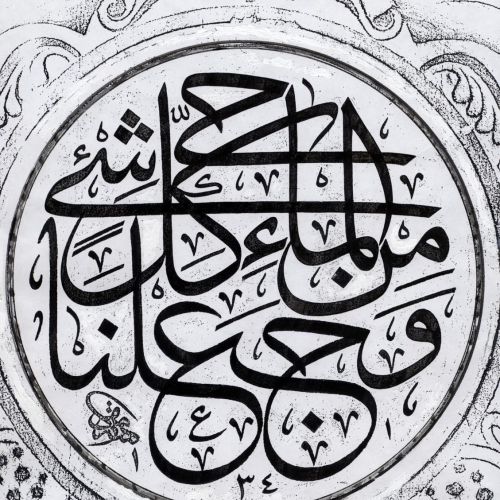 وَجَعَلْنَا
مِنَ الْمَاءِ كُلَّ شَيْءٍ
حَيٍّ